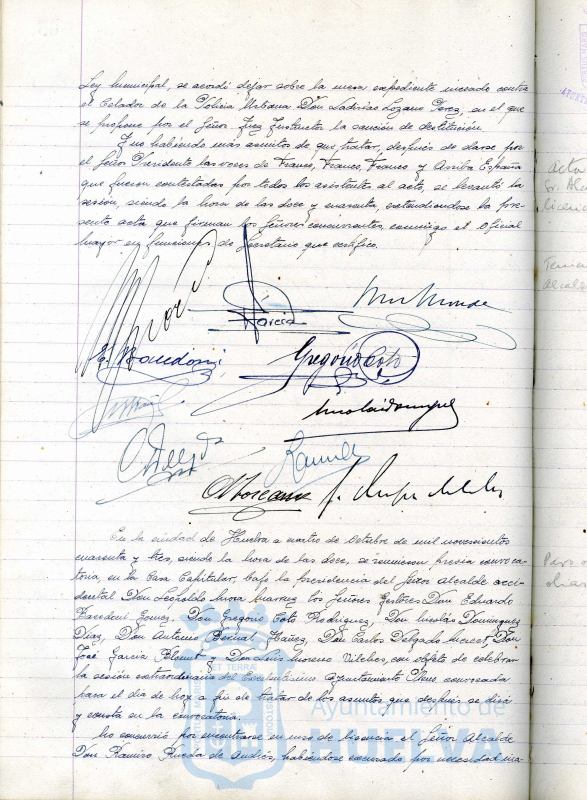 Ley municipal, se acordó dejar sobre la mesa expediente incoado contra
el Celador de la Policia Urbana Don Ladislao Lozano Perez, en el que
se propone por el Señor Juez Instructor la sanción de destitución.
Y no habiendo más asuntos de que tratar, después de darse por
el Señor Presidente las voces de Franco, Franco, Franco y Arriba España
que fueron contestadas por todos los asistentes al acto, se levantó la
sesión, siendo la hora de las doce y cuarenta, extendiendose la pre-
sente acta que firman los Señores concurrentes, conmigo el Oficial
mayor en funciones de Secretario que certifico.
García
E. Macedoni
Gregorio Coto
Nicolás Domínguez
C. Delgado
En la ciudad de Huelva a cuatro de Octubre de mil novecientos
cuarenta y tres, siendo la hora de las doce, se reunieron previa convoca-
toria, en la Casa Capitular, bajo la presidencia del Señor alcalde acci-
dental Don Leopoldo Mora los Señores Gestores Don Eduardo
Gomez, Don Gregorio Coto Rodriguez, Don Nicolas Dominguez
Diaz, Don Antonio Bernal Ibañez, Don Carlos Delgado Don
José Garcia y Don Luis Moreno Vilches, con objeto de celebrar
la sesión extraordinaria del Excelentisimo Ayuntamiento Pleno convocada
para el dia de hoy a fin de tratar de los asuntos que después se dirá
y consta en la convocatoria.
No concurrió por encontrarse en uso de licencia el Señor Alcalde
Don Ramiro Rueda de Andrés, habiendose excusado por necesidad
Ayuntamiento de
HUELVA
acta
licenci
alcal